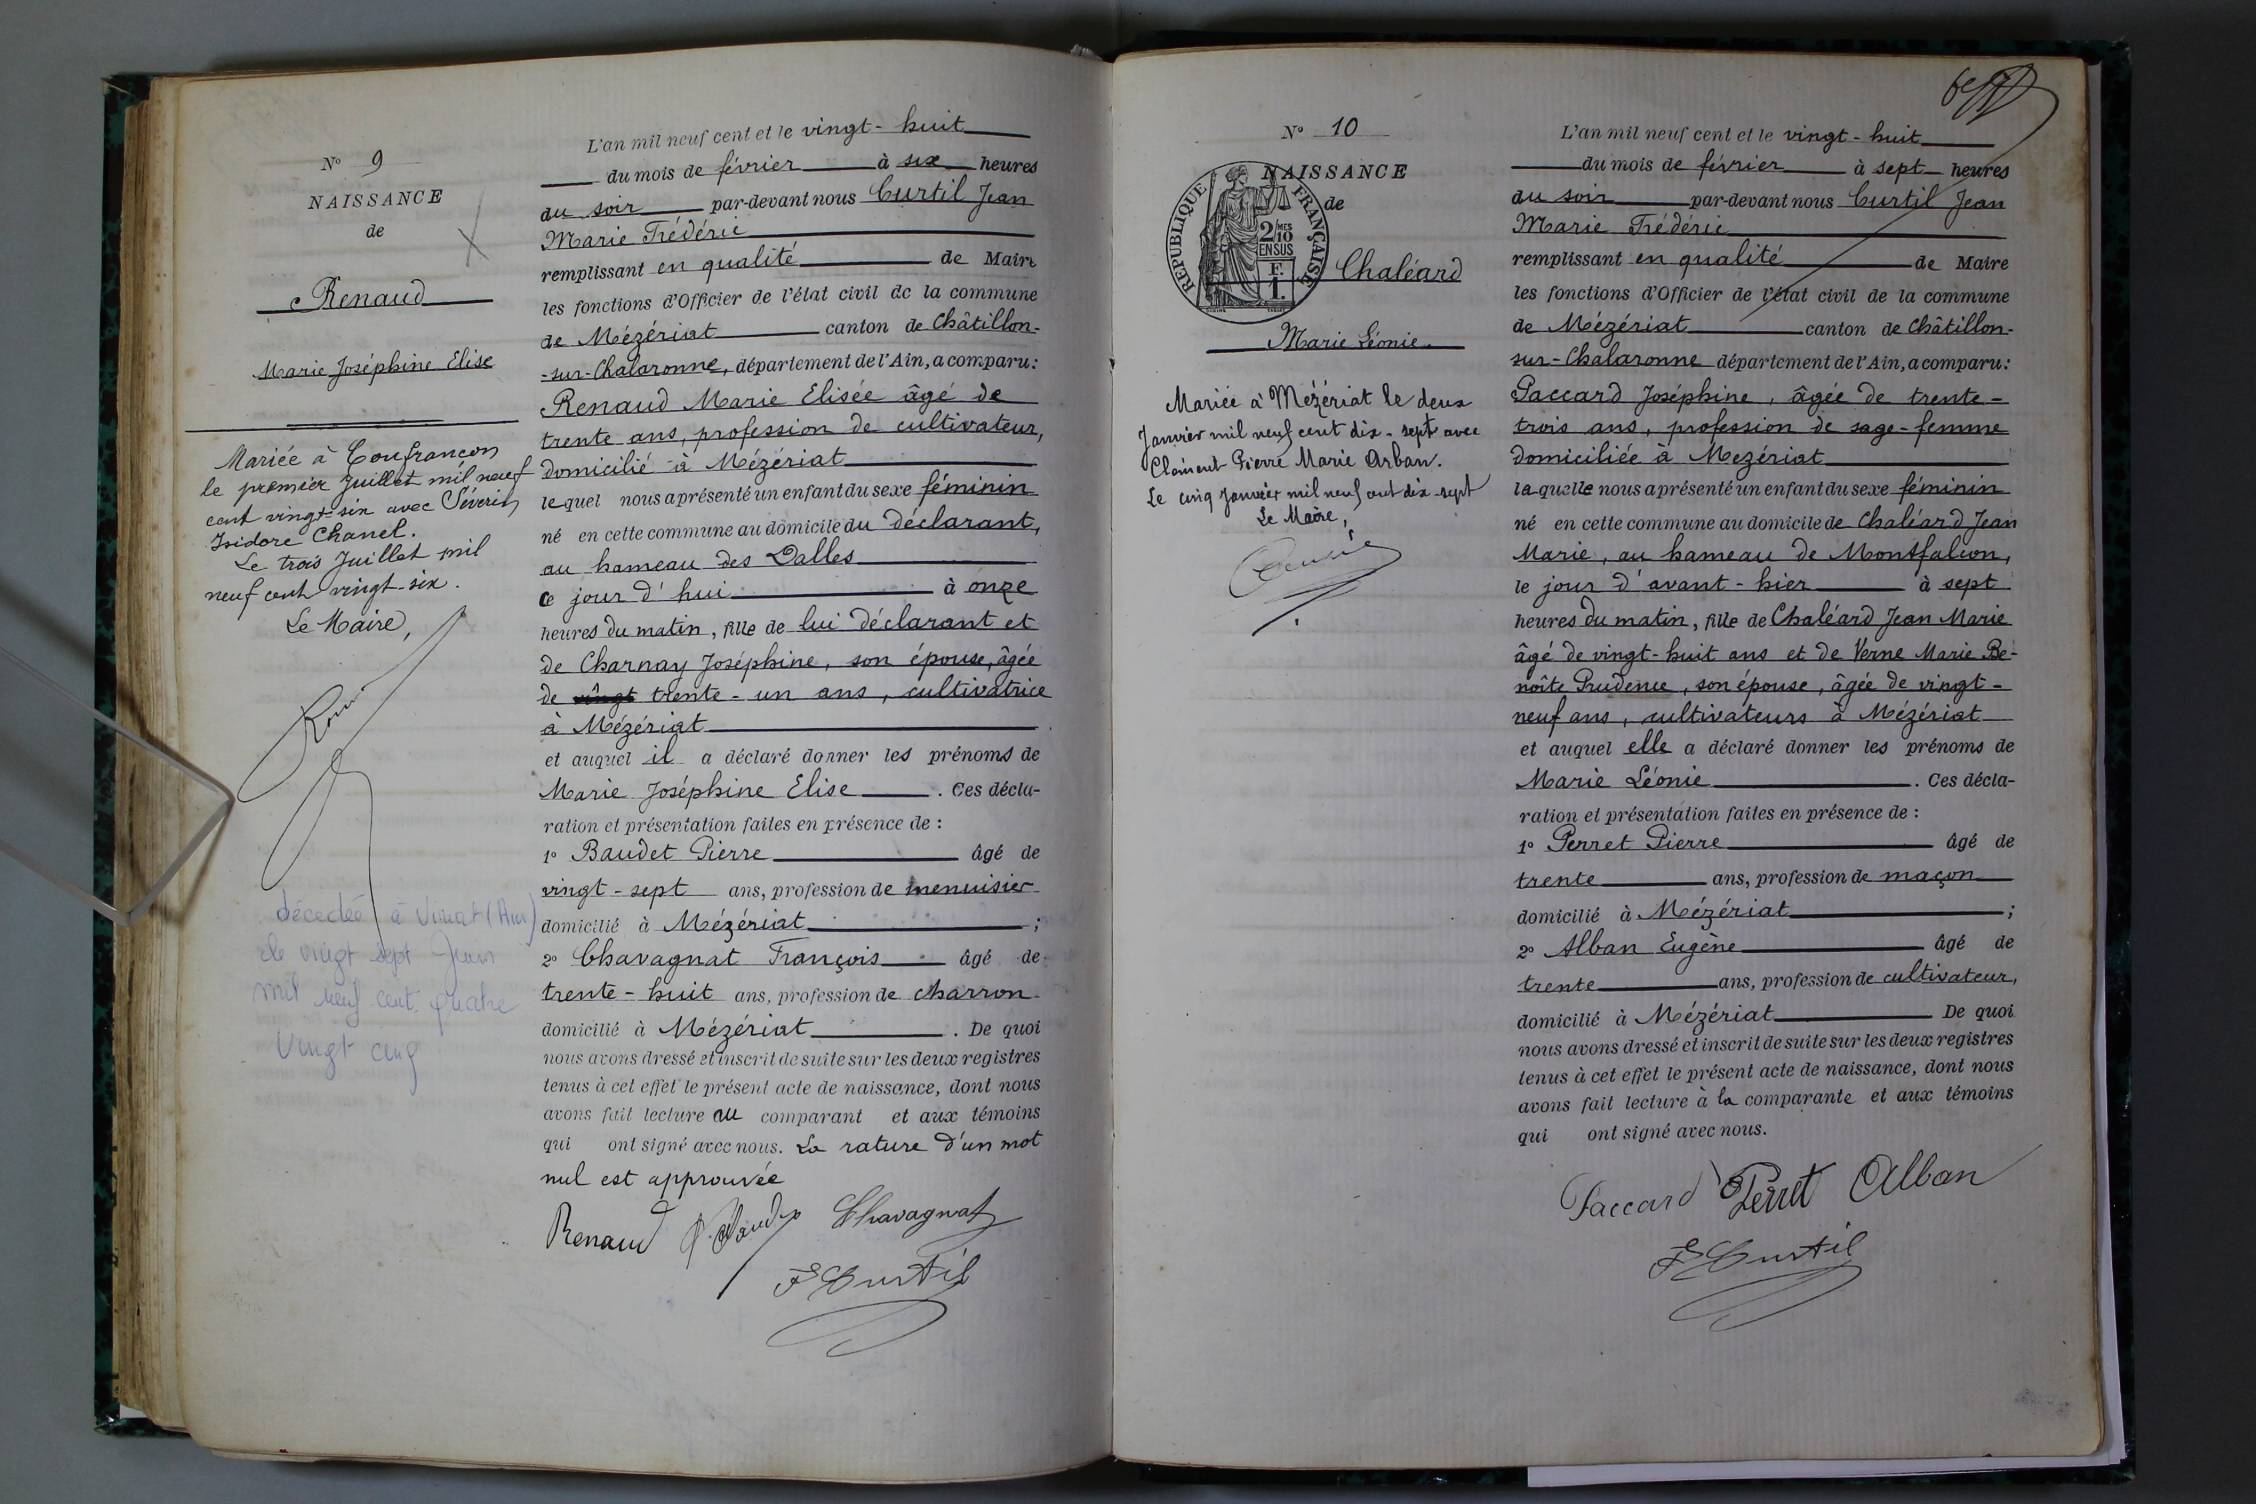 N° 9
NAISSANCE
de
Renaud
Marie Joséphine Elise
Mariée à Confrançon
le premier Juillet mil neuf
cent vingt-six avec Séverin
Isidore Chanel.
Le trois Juillet mil
neuf cent vingt-six.
Le Maire,
décédée à Viriat (Ain)
le vingt sept Juin
mil neuf cent quatre
vingt cinq
L'an mil neuf cent et le vingt-huit
du mois de février à six heures
du soir par-devant nous Curtil Jean
Marie Frédéric
remplissant en qualité de Maire
les fonctions d'Officier de l'état civil de la commune
de Mézériat canton de Châtillon-
-sur-Chalaronne, département de l'Ain, a comparu:
Renaud Marie Elisée âgé de
trente ans, profession de cultivateur,
domicilié à Mézériat
lequel nous a présenté un enfant du sexe féminin
né en cette commune au domicile du déclarant,
au hameau des Dalles
ce jour d'hui à onze
heures du matin, fille de lui déclarant et
de Charnay Joséphine, son épouse, âgée
de vingt trente-un ans, cultivatrice
à Mézériat
et auquel il a déclaré donner les prénoms de
Marie Joséphine Elise. Ces décla-
ration et présentation faites en présence de :
1° Baudet Pierre âgé de
vingt-sept ans, profession de menuisier
domicilié à Mézériat ;
2° Chavagnat François âgé de
trente-huit ans, profession de charron
domicilié à Mézériat. De quoi
nous avons dressé et inscrit de suite sur les deux registres
tenus à cet effet le présent acte de naissance, dont nous
avons fait lecture au comparant et aux témoins
qui ont signé avec nous. La rature d'un mot
nul est approuvée
Renaud Chavagnat
F Curtil
N° 10
NAISSANCE
de
REPUBLIQUE FRANÇAISE
2/10 MES
EN SUS
F.
1.
Chaléard
Marie Léonie.
Mariée à Mézériat le deux
Janvier mil neuf cent dix-sept avec
Clément Pierre Marie Arban.
Le cinq Janvier mil neuf cent dix-sept
Le Maire,
L'an mil neuf cent et le vingt-huit
du mois de février à sept heures
du soir par-devant nous Curtil Jean
Marie Frédéric
remplissant en qualité de Maire
les fonctions d'Officier de l'état civil de la commune
de Mézériat canton de Châtillon-
sur-Chalaronne département de l'Ain, a comparu:
Paccard Joséphine, âgée de trente-
trois ans, profession de sage-femme
domiciliée à Mezériat
laquelle nous a présenté un enfant du sexe féminin
né en cette commune au domicile de Chaléard Jean
Marie, au hameau de Montfalcon,
le jour d'avant-hier à sept
heures du matin, fille de Chaléard Jean Marie
âgé de vingt-huit ans et de Verne Marie Be-
noîte Prudence, son épouse, âgée de vingt-
neuf ans, cultivateurs à Mézériat
et auquel elle a déclaré donner les prénoms de
Marie Léonie. Ces décla-
ration et présentation faites en présence de :
1° Perret Pierre âgé de
trente ans, profession de maçon
domicilié à Mézériat ;
2° Alban Eugène âgé de
trente ans, profession de cultivateur,
domicilié à Mézériat De quoi
nous avons dressé et inscrit de suite sur les deux registres
tenus à cet effet le présent acte de naissance, dont nous
avons fait lecture à la comparante et aux témoins
qui ont signé avec nous.
Paccard Perret Alban
F Curtil